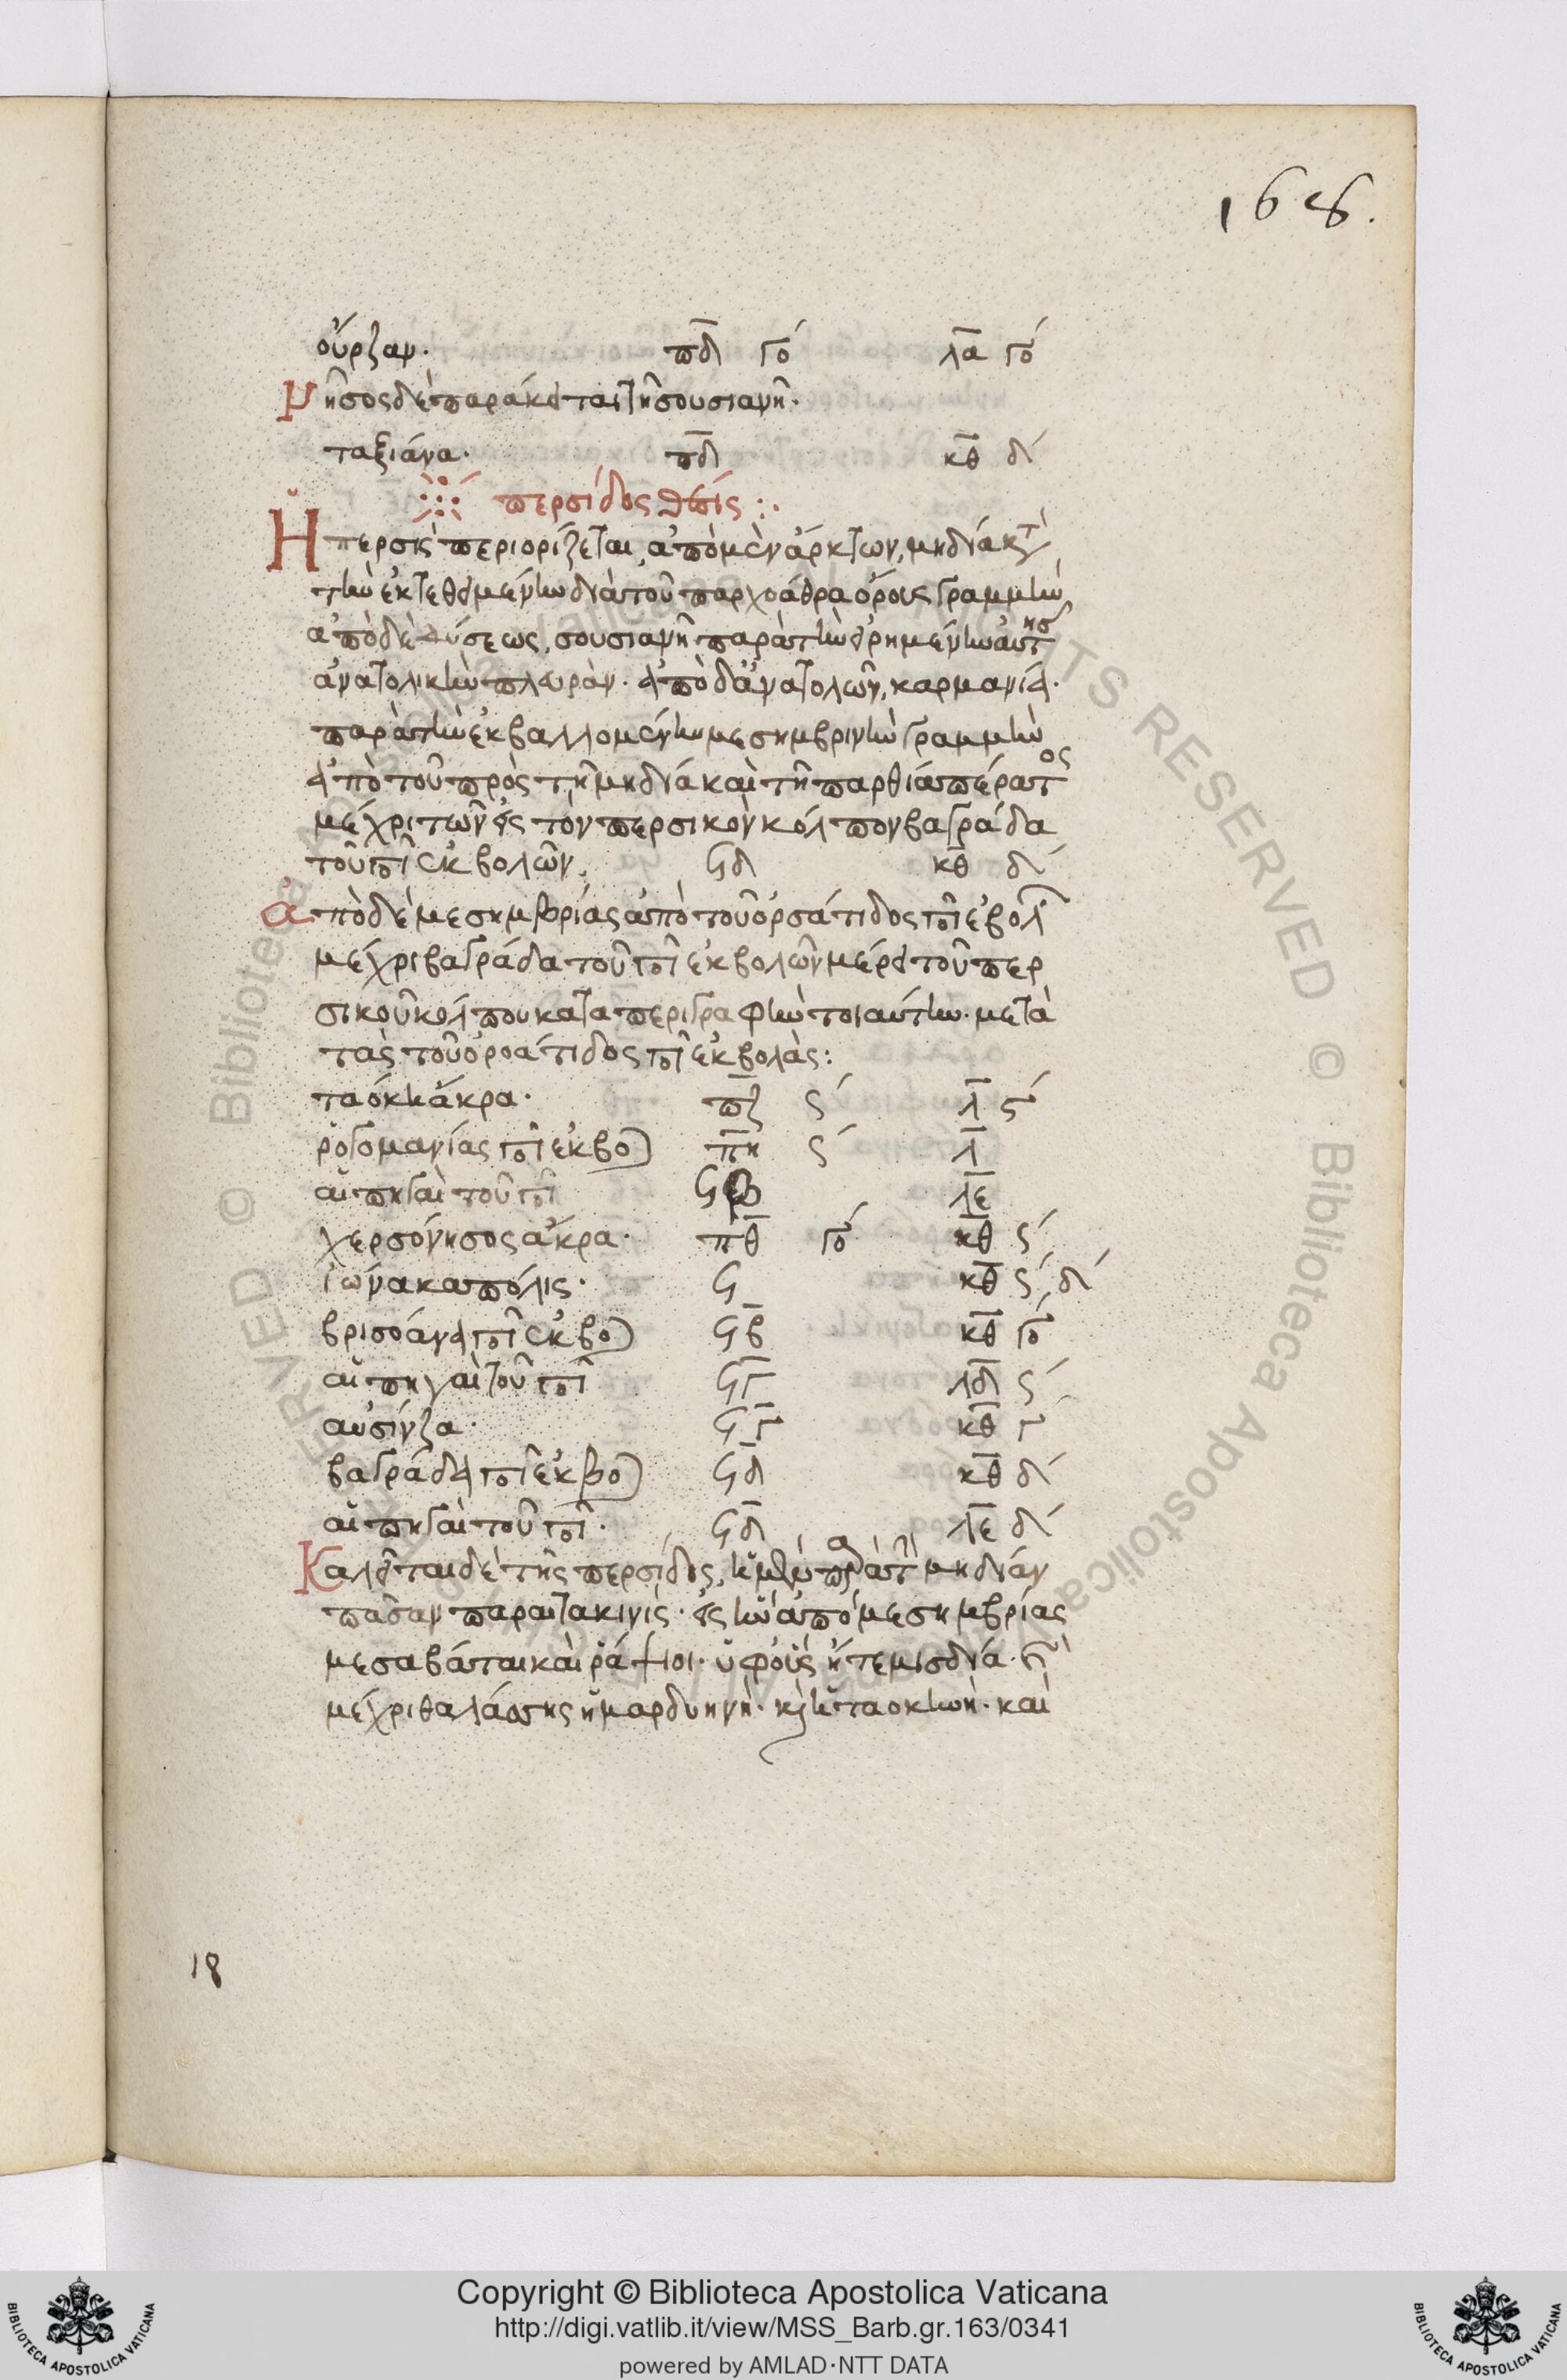 168.
οὔρζαν. πδ γο λα γο
Νῆσος δὲ παράκειται τῆ σουσιανῆ.
ταξιάνα. πδ κθ δ
περσίδος θέσις :.
Ἡ περσὶς περιορίζεται ἀπὸ μὲν ἄρκτων, μηδία κτ
τὴν ἐκτεθειμένην διὰ τοῦ παρχοάθρα ὄρους γραμμὴν
ἀπὸ δὲ δύσεως, σουσιανῆ παρὰ τὴν εἰρημένην αὐτῆσ
ἀνατολικὴν πλευράν. ἀπὸ δ' ἀνατολῶν, καρμανία.
παρὰ τὴν ἐκβαλλομένην μεσημβρινὴν γραμμὴν
ἀπὸ τοῦ πρὸς τῆ μηδία καὶ τῆ παρθία πέρατος
μέχρι τῶν εἰς τὸν περσικὸν κόλπον βαγράδα
τοῦ πο ἐκβολῶν. ϟδ κθ δ
ἀπὸ δὲ μεσημβρίας ἀπὸ τοῦ ὀρσάτιδος πο ἐβολ
μέχρι βαγράδα τοῦ πο ἐκβολῶν μέρει τοῦ περ
σικοῦ κόλπου κατὰ περιγραφὴν τοιαύτην. μετὰ
τὰς τοῦ ὀροάτιδος πο ἐκβολὰς:
ταόκη ἄκρα. πζ ς λ ς
ῥογομανίας πο ἐκβο πη ς λ
αἱ πηγαὶ τοῦ πο ϟβ λε
χερσόνησος ἄκρα. πθ γο κθ ς
ἰωνακαπόλις. ϟ κθ ς δ
βρισοάνα πο ἐκβο ϟβ κθ γο
αἱ πηγαὶ τοῦ πο ϟγ λδ ς
αὐσίνζα. ϟγ κθ γ
βαγράδα πο ἐκβο ϟδ κθ δ
αἱ πηγαὶ τοῦ πο. ϟδ λε δ
Καλεῖται δὲ τῆς περσίδος, ἡ μὲν πρὰ τὴ μηδίαν
πᾶσαν παραιτακινίς. εἰς ἣν ἀπὸ μεσημβρίας
μεσαβάται καὶ ῥάψιοι. ὑφ' οὓς ἥ τε μισδία.
μέχρι θαλάσσης ἡ μαρδυηνὴ. κὶ ἡ ταοκηνή. καὶ
18
Copyright © Biblioteca Apostolica Vaticana
http://digi.vatlib.it/view/MSS_Barb.gr.163/0341
powered by AMLAD·NTT DATA